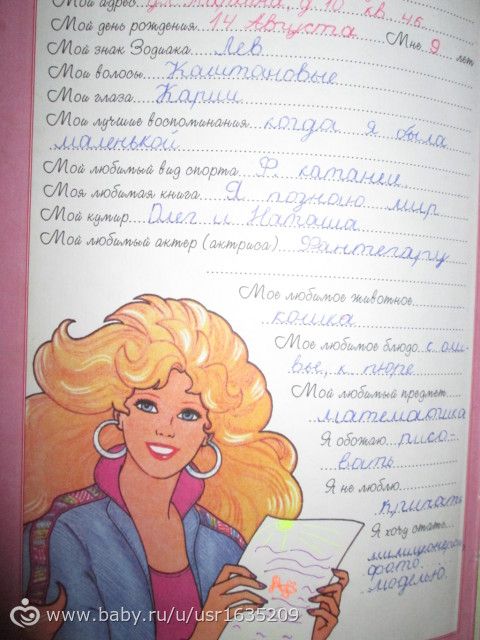 Мой адрес ул. д. 10 кв. 46.
Мой день рождения 14 августа Мне 9 лет
Мой знак Зодиака Лев
Мои волосы Каштановые
Мои глаза Карии
Мои лучшие воспоминания когда я была
маленькой
Мой любимый вид спорта Ф. катание
Моя любимая книга Я познаю мир
Мой кумир Олег и Наташа
Мой любимый актер (актриса)
Мое любимое животное
кошка
Мое любимое блюдо
вье, к пюре
Мой любимый предмет
математика
Я обожаю рисо-
вать
Я не люблю
кричать
Я хочу стать
милиционером,
фото.
моделью.
www.baby.ru/u/usr1635209